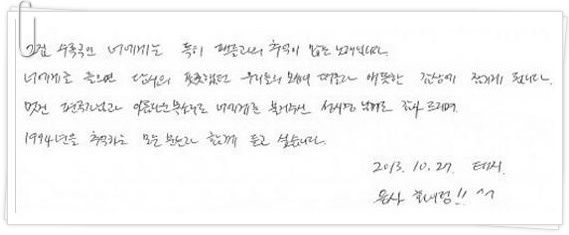 수록곡인 너에게는 특히 팬들과의 추억이 많은 노래입니다.
너에게를 들으면 당시의 풋풋했던 우리들의 모습이 떠올라 애틋한 감상에 젖게 됩니다.
멋진 편곡과 아름다운 목소리로 너에게를 불러주신 성시경 님께도 감사 드리며,
1994년을 추억하는 모든 분들과 함께 듣고 싶습니다.
2013. 10. 27. 태지.
응사 화이팅!! ^^